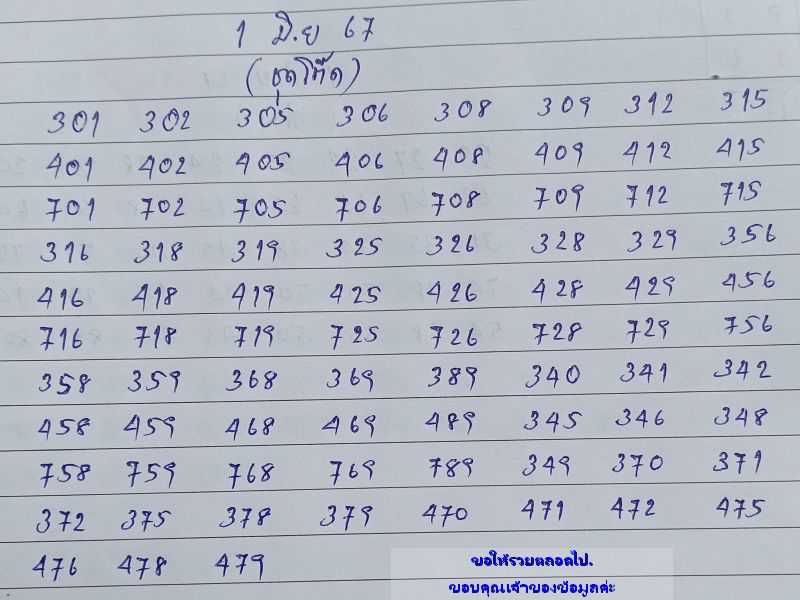 1 มิ.ย 67
(ชุดโต๊ด)
301 302 305 306 308 309 312 315
401 402 405 406 408 409 412 415
701 702 705 706 708 709 712 715
316 318 319 325 326 328 329 356
416 418 419 425 426 428 429 456
716 718 719 725 726 728 729 756
358 359 368 369 389 340 341 342
458 459 468 469 489 345 346 348
758 759 768 769 789 349 370 371
372 375 378 379 470 471 472 475
476 478 479
ขอให้รวยตลอดไป.
ขอบคุณเจ้าของข้อมูลค่ะ